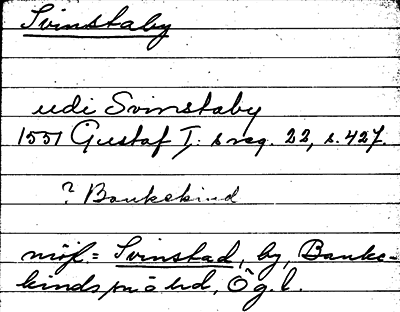 Svinstaby
udi Svinstaby
1551 Gustaf I:s reg. 22, s. 427.
? Bankekind
möjl = Svinstad, by, Banke-
kinds hd, Ög.l.